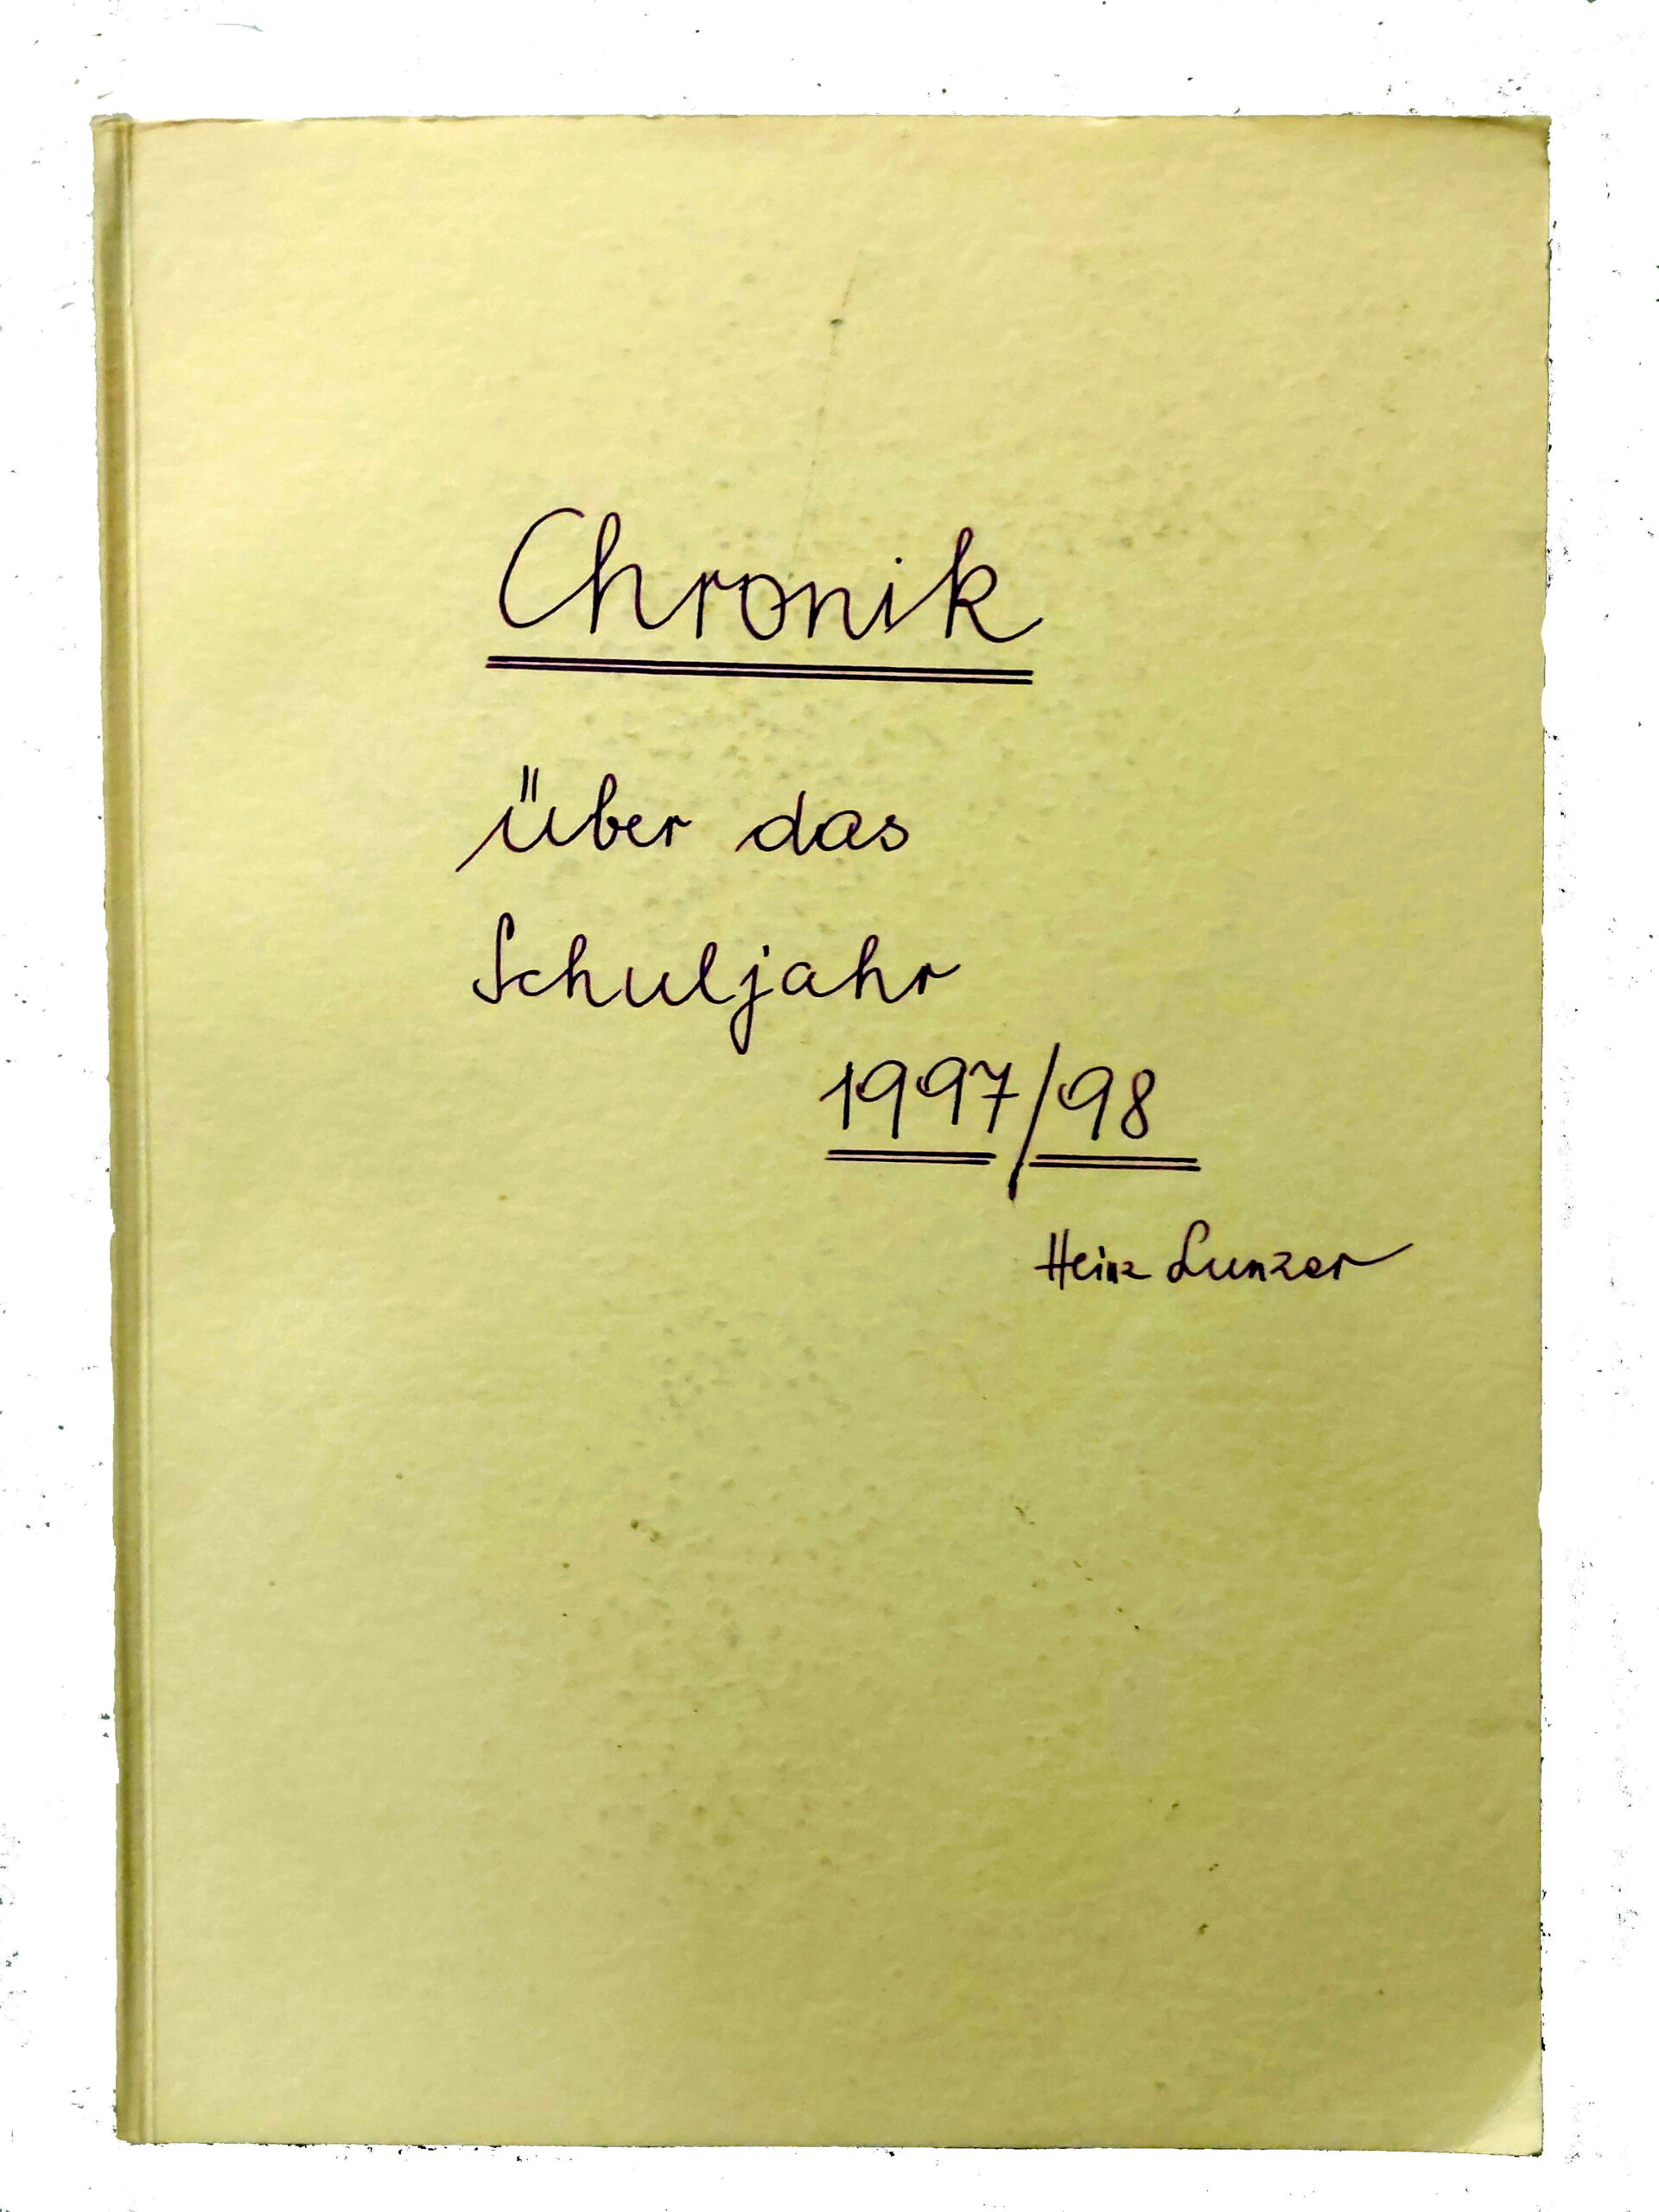 Chronik
über das
Schuljahr
1997/98
Heinz Lunzer